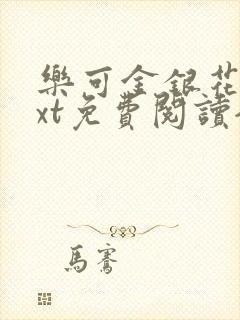 樂可金銀花
xt免費閱讀
馬騫